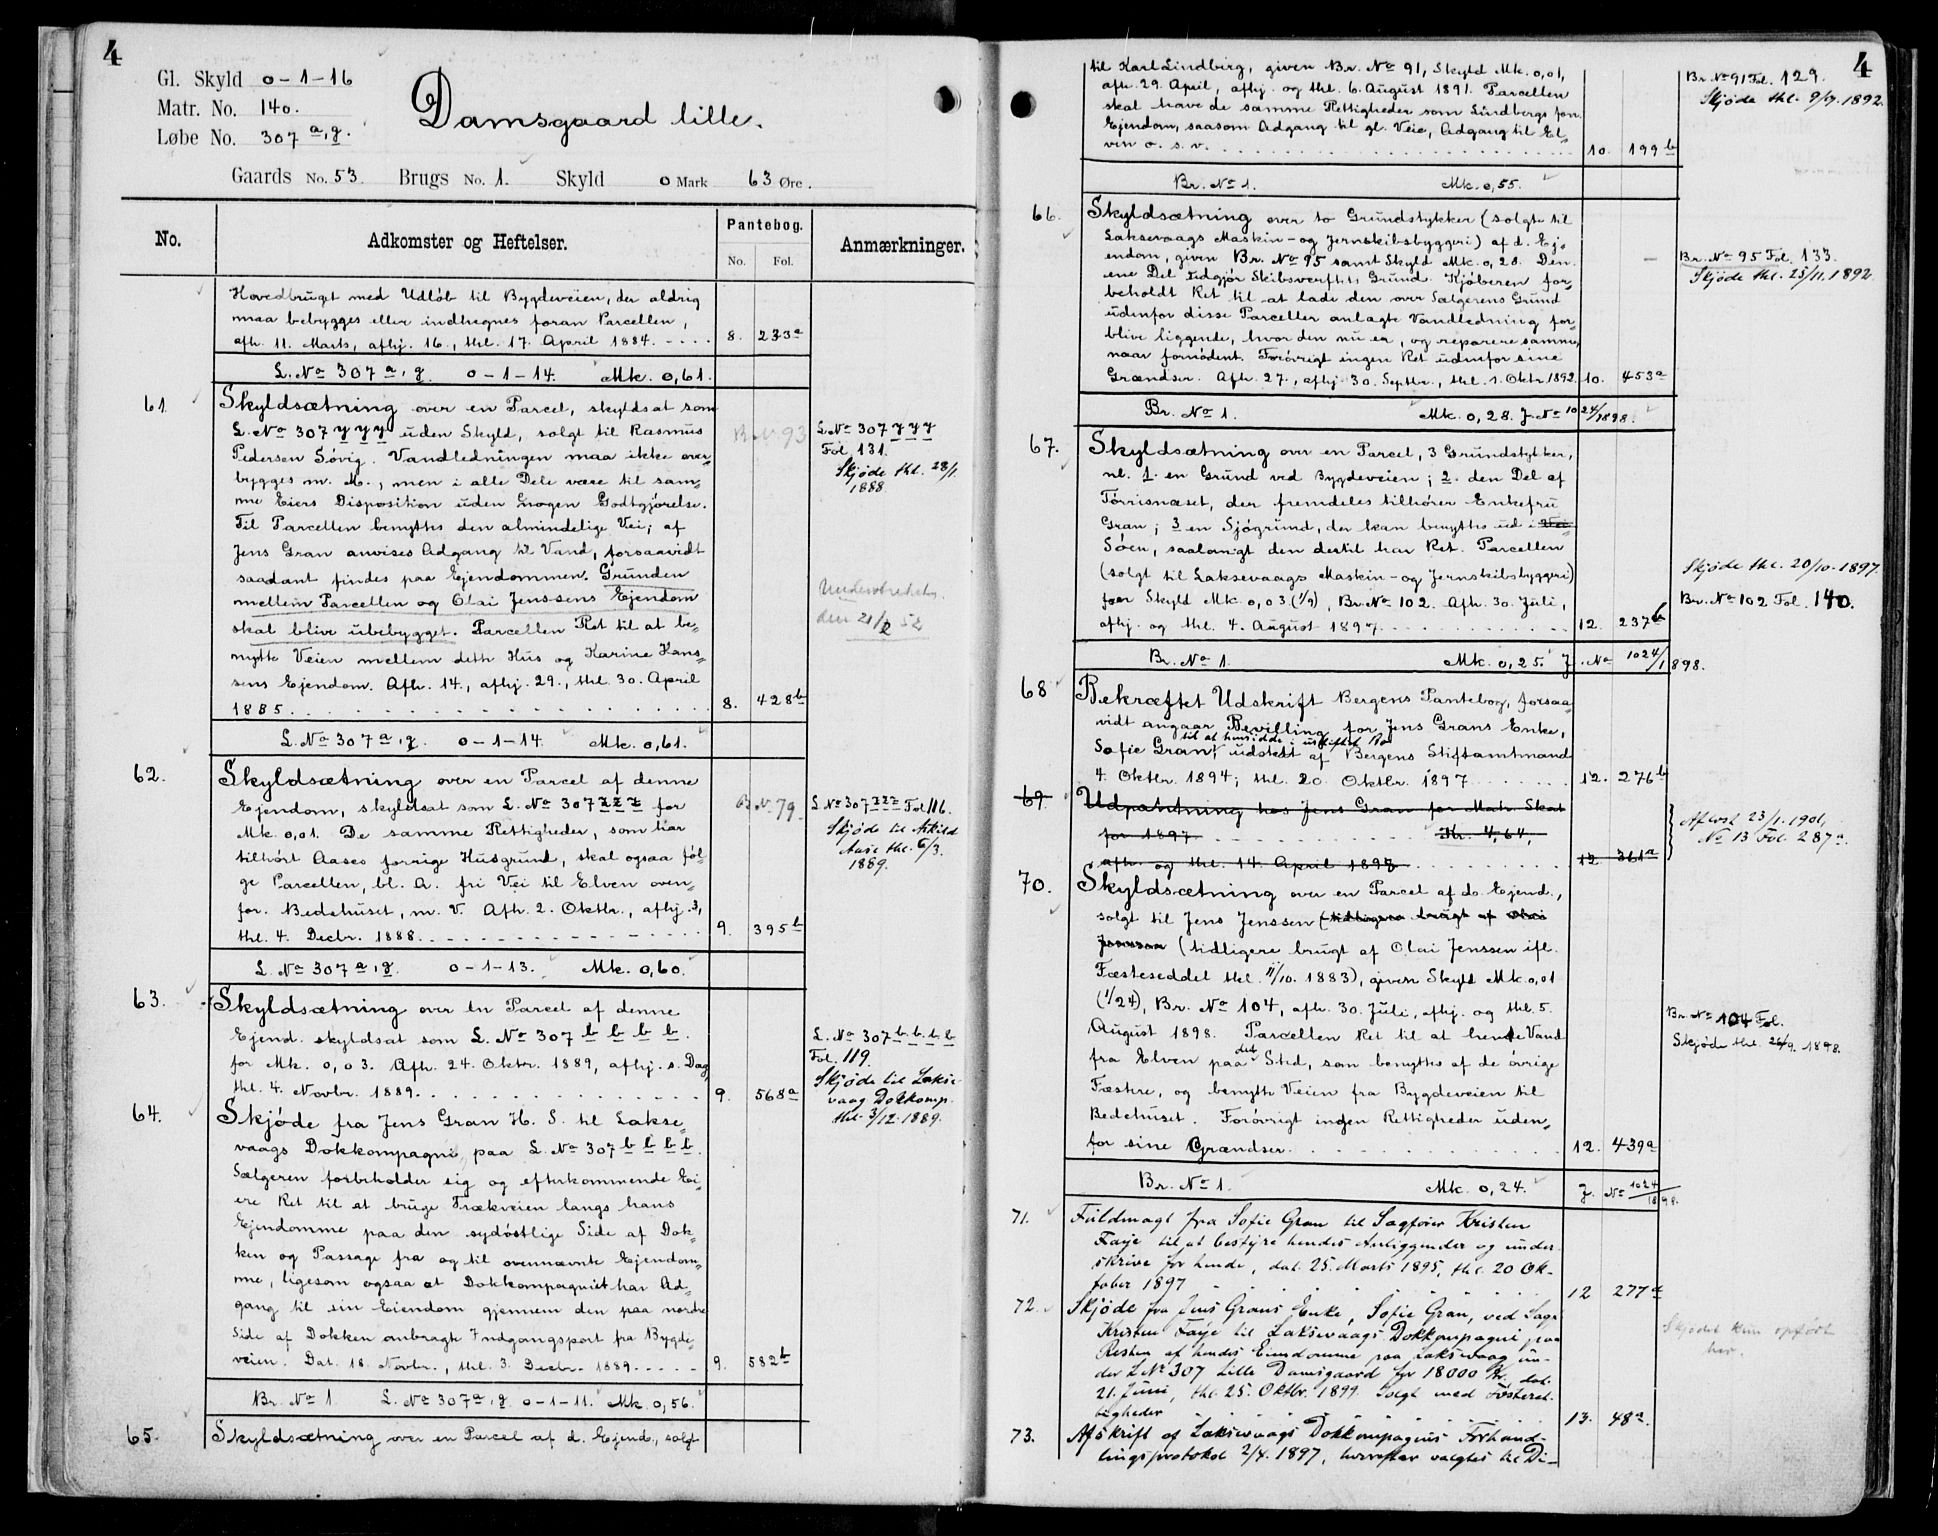 4
Gl. Skyld 0-1-16
Matr. No. 140.
Løbe No. 307 a, g.
Damsgaard lille.
Gaards No. 53. Brugs No. 1. Skyld 0 Mark 63 Øre.
No. Adkomster og Heftelser. Pantebog. No. Fol. Anmærkninger.
Hovedbruget med Udløb til Bygdeveien, der aldrig
maa bebygges eller indhegnes foran Parcellen,
afh. 11. Marts, afhj. 16., thl. 17. April 1884. 8. 233a
L. No 307 a, g. 0-1-14. Mk. 0,61.
61. Skyldsætning over en Parcel, skyldsat som
L. No 307 y y y uden Skyld, solgt til Rasmus
Pedersen Søvig. Vandledningen maa ikke over-
bygges m. M., men i alle Dele være til sam-
me Eiers Disposition uden nogen Godtgjørelse.
Til Parcellen benyttes den almindelige Vei; af
Jens Gran anvises Adgang til Vand, forsaavidt
saadant findes paa Ejendommen. Grunden
mellem Parcellen og Olai Jenssens Ejendom
skal blive ubebygget. Parcellen Ret til at be-
nytte Veien mellem dette Hus og Karine Hans-
sens Ejendom. Afh. 14., afhj. 29., thl. 30. April
1885. 8. 428b
B. No 93
L. No 307 y y y
Fol. 131.
Skjøde thl. 28/1.
1888.
den 21/2 52
L. No 307 a, g. 0-1-14. Mk. 0,61.
62. Skyldsætning over en Parcel af denne
Ejendom, skyldsat som L. No 307 z z z for
Mk. 0,01. De samme Rettigheder, som har
tilhørt Aases forrige Husgrund, skal ogsaa føl-
ge Parcellen, bl. A. fri Vei til Elven oven-
for Bedehuset, m. V. Afh. 2. Oktbr., afhj. 3,
thl. 4. Decbr. 1888. 9. 395b
B. No. 79.
L. No 307 z z z Fol. 116.
Skjøde til Askild
Aase thl. 6/3.
1889.
L. No 307 a, g. 0-1-13. Mk. 0,60.
63. Skyldsætning over en Parcel af denne
Ejend. skyldsat som L. No 307 b b b b.
for Mk. 0,03. Afh. 24. Oktbr. 1889, afhj. s. Dag,
thl. 4. Novbr. 1889. 9. 568a
L. No 307 b. b. b. b
Fol. 119.
Skjøde til Lakse-
vaag Dokkomp.
thl. 3/12. 1889.
64. Skjøde fra Jens Gran H. S. til Lakse-
vaags Dokkompagni paa L. No 307 b b b b.
Sælgeren forbeholder sig og efterkommende Ei-
ere Ret til at bruge Trækveien langs hans
Ejendomme paa den sydøstlige Side af Dok-
ken og Passage fra og til ovennævnte Ejendom-
me, ligesom ogsaa at Dokkompagniet har Ad-
gang til sin Eiendom gjennem den paa nordre
Side af Dokken anbragte Indgangsport fra Bygde-
veien. Dat. 18. Novbr., thl. 3. Decbr. 1889. 9. 582b
Br. No 1. L. No 307 a, g 0-1-11. Mk. 0,56.
65. Skyldsætning over en Parcel af d. Ejend., solgt
4
til Karl Lindberg, given Br. No 91, Skyld Mk. 0,01,
afh. 29. April, afhj. og thl. 6. August 1891. Parcellen
skal have de samme Rettigheder som Lindbergs for.
Ejendom, saasom Adgang til gl. Veie, Adgang til El-
ven o. s. v. 10. 199b
Br. No 91 Fol. 129.
Skjøde thl. 9/9. 1892.
Br. No 1. Mk. 0,55.
66. Skyldsætning over to Grundstykker (solgte til
Laksevaags Maskin- og Jernskibsbyggeri) af d. Ej-
endom, given Br. No 95 samt Skyld Mk. 0,28. Den
ene Del udgjør Skibsverftets Grund. Kjøberen for-
beholdt Ret til at lade den over Sælgerens Grund
udenfor disse Parceller anlagte Vandledning for-
blive liggende, hvor den nu er, og reparere samme,
naar fornødent. Forøvrigt ingen Ret udenfor sine
Grændser. Afh. 27., afhj. 30. Septbr., thl. 1. Oktr. 1892. 10. 453a
Br. No 95 Fol. 133.
Skjøde thl. 25/11. 1892.
Br. No 1. Mk. 0,28. J. No 1024/1898.
67. Skyldsætning over en Parcel, 3 Grundstykker,
nl. 1. en Grund ved Bygdeveien; 2. den Del af
Tørrisnæset, der fremdeles tilhører Enkefru
Gran; 3 en Sjøgrund, der kan benyttes ud i Vei
Søen, saalangt den dertil har Ret. Parcellen
(solgt til Laksevaags Maskin- og Jernskibsbyggeri)
faar Skyld Mk. 0,03 (1/9), Br. No 102. Afh. 30. Juli,
afhj. og thl. 4. August 1897. 12. 237b
Skjøde thl. 20/10. 1897.
Br. No 102 Fol. 140.
Br. No 1. Mk. 0,25. J. No 1024/1898.
68 Bekræftet Udskrift Bergens Pantebog, forsaa-
vidt angaar Bevilling for Jens Grans Enke,
til at hensidde i uskiftet Bo
Sofie Gran, udstedt af Bergens Stiftamtmand
4. Oktbr. 1894; thl. 20. Oktbr. 1897 12. 276b
69. Udpantning hos Jens Gran for Matr. Skat
for 1897 Kr. 4,64,
afh. og thl. 14. April 1898 12. 361a
Aflyst 23/1. 1901,
No 13 Fol. 287a.
70. Skyldsætning over en Parcel af d. Ejend.,
solgt til Jens Jenssen (tidligere brugt af Olai
Jenssen (tidligere brugt af Olai Jenssen ifl.
Fæsteseddel thl. 11/10. 1883), given Skyld Mk. 0,01
(1/24), Br. No 104, afh. 30. Juli, afhj. og thl. 5.
August 1898. Parcellen Ret til at hente Vand
fra Elven paa det Sted, som benyttes af de øvrige
Fæstere, og benytte Veien fra Bygdeveien til
Bedehuset. Forøvrigt ingen Rettigheder uden-
for sine Grændser. 12. 439a
Br. No 104 Fol.
Skjøde thl. 26/9. 1898.
Br. No 1. Mk. 0,24. J. No 1024/1898.
71. Fuldmagt fra Sofie Gran til Sagfører Kristen
Faye til at bestyre hendes Anliggender og under-
skrive for hende, dat. 25. Marts 1895, thl. 20 Ok-
tober 1897 12 277a
72. Skjøde fra Jens Grans Enke, Sofie Gran, ved Sagf.
Kristen Faye til Laksevaags Dokkompagni paa
Resten af hendes Eiendomme paa Laksevaag un-
der L. No 307 Lille Damsgaard for 18000 Kr. dat.
21. Juni, thl. 25. Oktbr. 1899. Solgt med Fæsteret-
tigheder 13. 48a.
Skjødet kun opført
her.
73. Afskrift af Laksevaags Dokkompagnis Forhand-
lingsprotokol 2/4. 1897, hvorefter valgtes til Di-